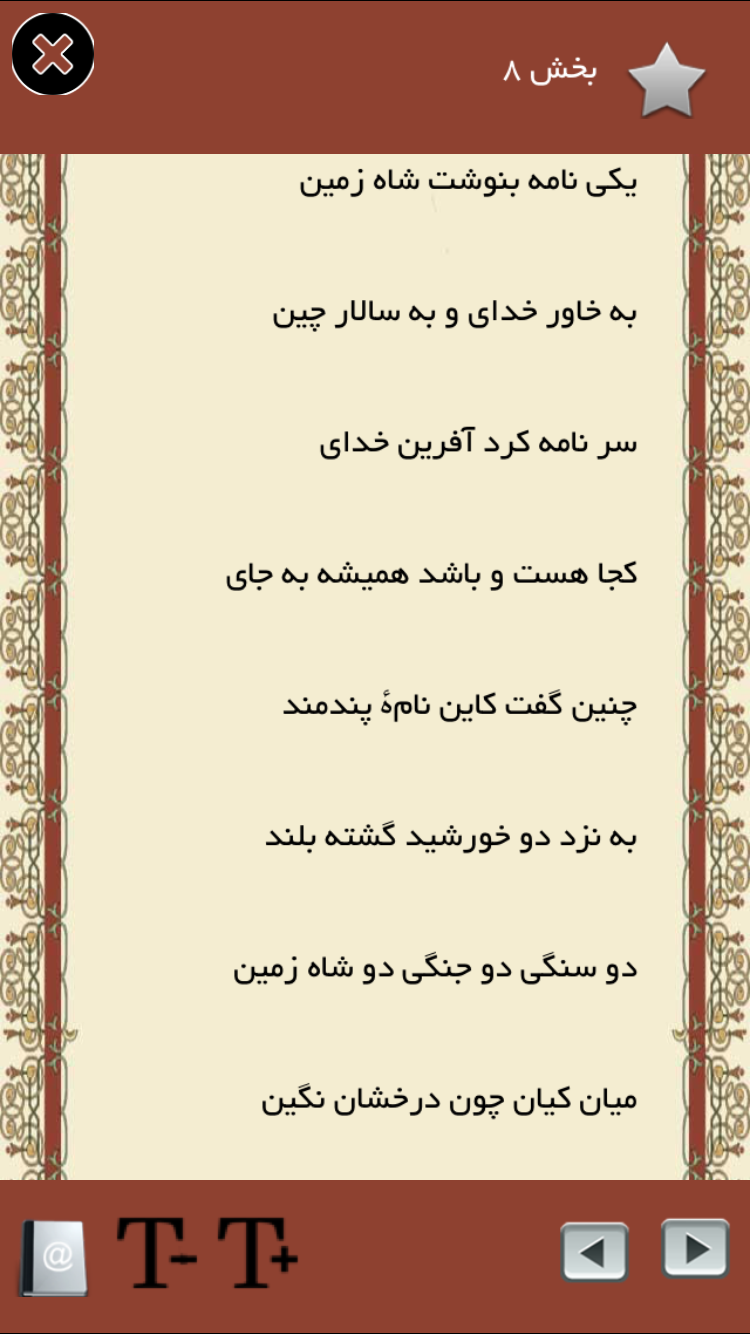 بخش ۸
یکی نامه بنوشت شاه زمین
به خاور خدای و به سالار چین
سر نامه کرد آفرین خدای
کجا هست و باشد همیشه به جای
چنین گفت کاین نامهٔ پندمند
به نزد دو خورشید گشته بلند
دو سنگی دو جنگی دو شاه زمین
میان کیان چون درخشان نگین
@ T- T+